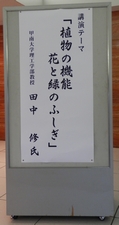 講演テーマ
「植物の機能
花と緑のふしぎ」
甲南大学理工学部教授
田中 修氏